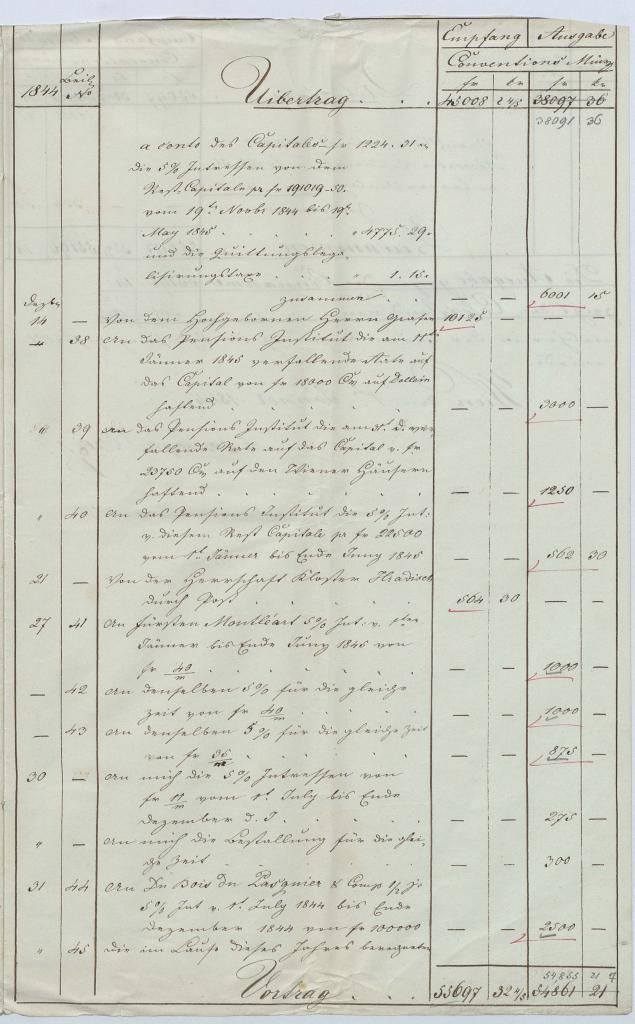 Empfang Ausgabe
Conventions Münz
1844 Beil. No fr kr fr kr
Uibertrag . . . 43008 2 4/5 38097 36
38091 36
a conto des Capitales fr 1224. 31 "
die 5 % Intressen von dem
Rest-Capitale pr fr 191019-50.
vom 19t. Novbr 1844 bis 19t.
May 1845 . . . . " 4775. 29.
und die Quittungslega
lisirungstaxe . . . " 1. 15.
zusammen . . — — 6001 15
Dezbr
14 — Von dem Hochgebornen Herrn Grafen 10125 — — —
" 38 An das Pensions Institut die am 1t.
Jänner 1845 verfallende Rate auf
das Capital von fr 18000 CM auf Dollein
haftend . . . . — — 3000 —
" 39 An das Pensions Institut die am d. ver
fallende Rate auf das Capital v. fr
23750 CM auf den Wiener Häusern
haftend . . . . — — 1250 —
" 40 An das Pensions Institut die 5 % Int:
v. diesem Rest Capitale pr fr 22500
vom 1t. Jänner bis Ende Juny 1845 — — 562 30
21 — Von der Herrschaft Kloster Hradisch
durch Post . . . . 564 30 — —
27 41 An Fürsten Montléart 5 % Int: v. 1ten
Jänner bis Ende Juny 1845 von
fr 40/m . . . . — — 1000 —
— 42 An denselben 5 % für die gleiche
Zeit von fr 40/m . . . — — 1000 —
— 43 An denselben 5 % für die gleiche Zeit
von fr 35/m . . . . — — 875 —
30 — An mich die 5 % Intressen von
fr 11/m vom 1t. July bis Ende
Dezember d. J. . . . — — 275 —
" — An mich die Bestallung für die glei
che Zeit . . . . — — 300 —
31 44 An Du Bois Du Pasquier & Comp 1/2 Jr
5 % Int v. 1t. July 1844 bis Ende
Dezember 1844 von fr 100000 — — 2500 —
" 45 Die im Laufe dieses Jahres berechneten
54,855 21
Vortrag . . . 55697 32 4/5 54861 21